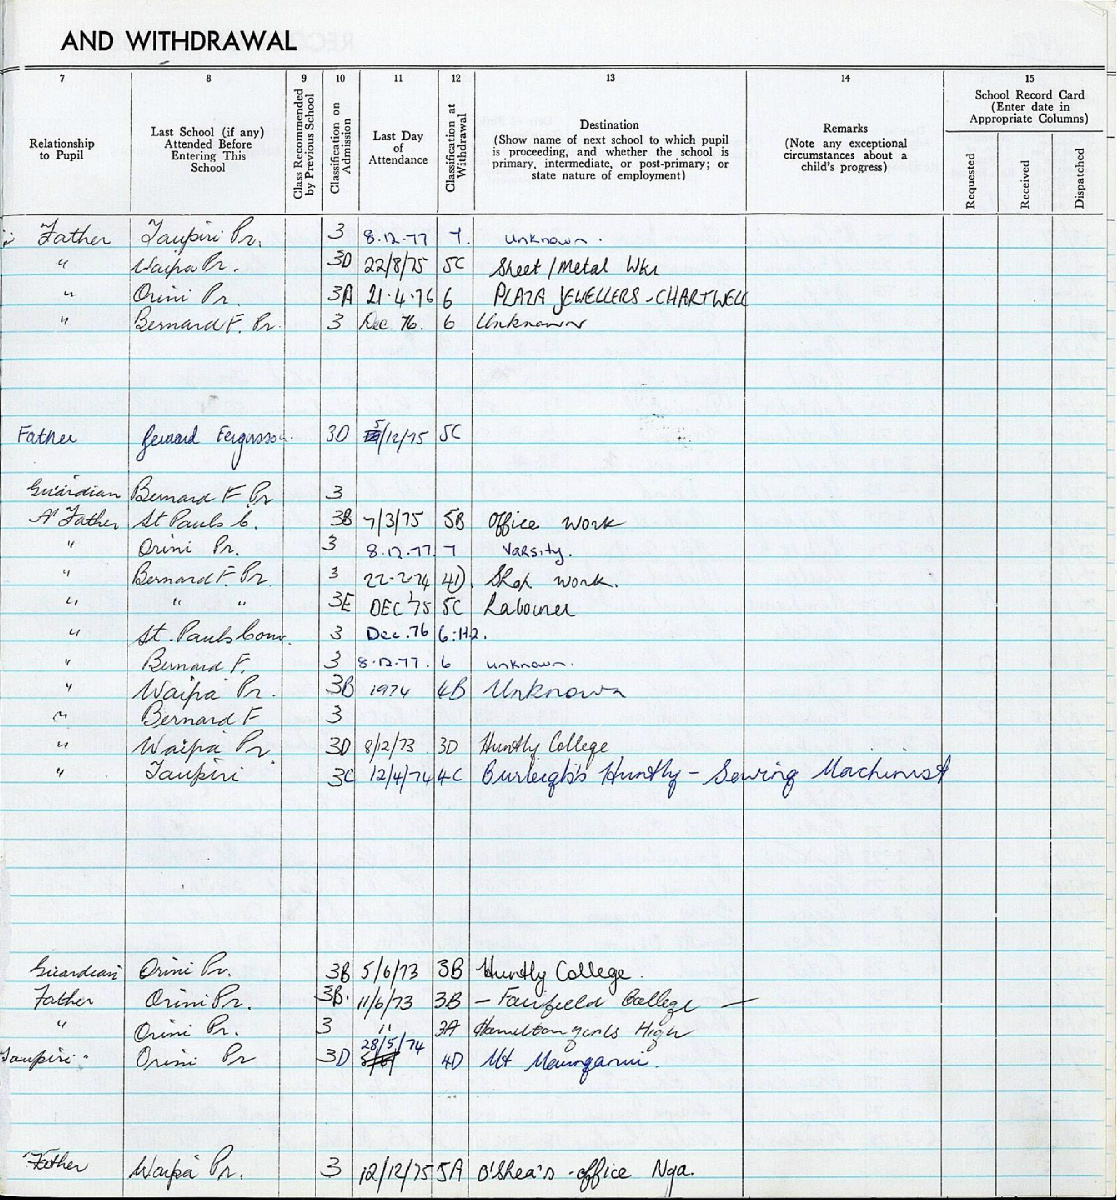 AND WITHDRAWAL
7 8 9 10 11 12 13 14 15
Relationship to Pupil
Last School (if any) Attended Before Entering This School
Class Recommended by Previous School
Classification on Admission
Last Day of Attendance
Classification at Withdrawal
Destination (Show name of next school to which pupil is proceeding, and whether the school is primary, intermediate, or post-primary; or state nature of employment)
Remarks (Note any exceptional circumstances about a child's progress)
School Record Card (Enter date in Appropriate Columns)
Requested
Received
Dispatched
Father Taupiri Pr. 3 8.12.77 7. unknown.
" Waipa Pr. 3D 22/8/75 5C Sheet/Metal Wkr
" Orini Pr. 3A 21.4.76 6 PLAZA JEWELLERS - CHARTWELL
" Bernard F. Pr. 3 Dec 76. 6 Unknown
Father Fergusson 3D 5/12/75 5C
Guardian Bernard F Pr 3
Father St Pauls C. 3B 7/3/75 5B Office Work
" Orini Pr. 3 8.12.77 7 Varsity.
" Bernard F Pr. 3 22-2-74 4D. Shop work.
" " " 3E DEC '75 5C Labourer
" St. Pauls Conv. 3 Dec.76 6:H2.
" Bernard F. 3 8.12.77. 6 unknown.
" Waipa Pr. 3B 1974 4B Unknown
" Bernard F 3
" Waipa Pr. 3D 8/12/73 3D Huntly College
" Taupiri 3C 12/4/74 4C Burleigh's Huntly - Sewing Machinist
Guardian Orini Pr. 3B 5/6/73 3B Huntly College.
Father Orini Pr. 3B. 11/6/73 3B - Fairfield College —
" Orini Pr. 3 " 3A Hamilton girls High
Taupiri " Orini Pr 3D 28/5/74 4D Mt Maunganui.
Father Waipa Pr. 3 12/12/75 5A O'Shea's - office Nga.